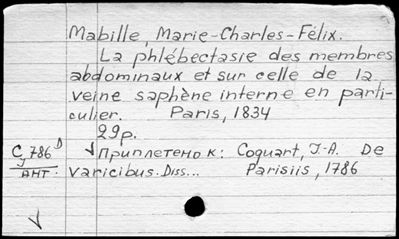 Mabille, Marie-Charles-Félix.
La phlébectasie des membres
abdominaux et sur celle de la
veine saphène interne en parti-
culier. Paris, 1834
29p.
C 786 D
J
АНТ.
√ Приплетено к: Coquart, J-A. De
varicibus. Diss... Parisiis, 1786
√